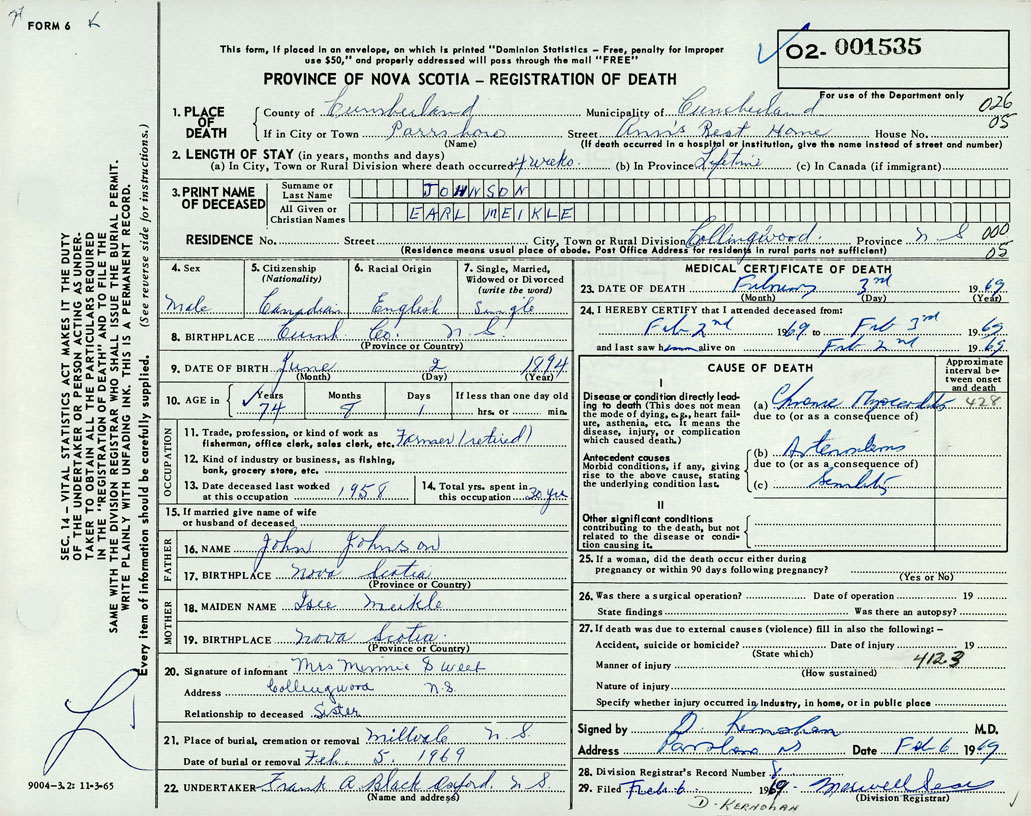 FORM 6
This form, if placed in an envelope, on which is printed "Dominion Statistics – Free, penalty for improper
use $50," and properly addressed will pass through the mail "FREE"
PROVINCE OF NOVA SCOTIA – REGISTRATION OF DEATH
O2- 001535
For use of the Department only
026
05
1. PLACE OF DEATH
County of Cumberland Municipality of Cumberland
If in City or Town Parrsboro Street Ann's Rest Home House No.
(Name) (If death occurred in a hospital or institution, give the name instead of street and number)
2. LENGTH OF STAY (in years, months and days)
(a) In City, Town or Rural Division where death occurred 4 weeks. (b) In Province Lifetime (c) In Canada (if immigrant)
3. PRINT NAME OF DECEASED
Surname or Last Name JOHNSON
All Given or Christian Names EARL MEIKLE
RESIDENCE No. Street City, Town or Rural Division Collingwood. Province N S 000
(Residence means usual place of abode. Post Office Address for residents in rural parts not sufficient) 05
4. Sex
Male
5. Citizenship
(Nationality)
Canadian
6. Racial Origin
English
7. Single, Married,
Widowed or Divorced
(write the word)
Single
8. BIRTHPLACE Cumb Co. N S
(Province or Country)
9. DATE OF BIRTH June 2 1894
(Month) (Day) (Year)
10. AGE in Years Months Days If less than one day old
74 8 1 hrs. or min.
OCCUPATION
11. Trade, profession, or kind of work as
fisherman, office clerk, sales clerk, etc. Farmer (retired)
12. Kind of industry or business, as fishing,
bank, grocery store, etc.
13. Date deceased last worked
at this occupation 1958
14. Total yrs. spent in
this occupation
15. If married give name of wife
or husband of deceased
FATHER
16. NAME John Johnson
17. BIRTHPLACE Nova Scotia
(Province or Country)
MOTHER
18. MAIDEN NAME Meikle
19. BIRTHPLACE Nova Scotia
(Province or Country)
20. Signature of informant Mrs Minnie Sweet
Address Collingwood N.S.
Relationship to deceased Sister
21. Place of burial, cremation or removal Millvale N.S.
Date of burial or removal Feb. 5. 1969
22. UNDERTAKER Frank A Black Oxford. N S
(Name and address)
MEDICAL CERTIFICATE OF DEATH
23. DATE OF DEATH February 3rd 1969
(Month) (Day) (Year)
24. I HEREBY CERTIFY that I attended deceased from:
Feb 2nd 1969 to Feb 3rd 1969
and last saw him alive on Feb 2nd 1969.
CAUSE OF DEATH
Approximate
interval be-
tween onset
and death
I
Disease or condition directly lead-
ing to death (This does not mean
the mode of dying, e.g., heart fail-
ure, asthenia, etc. It means the
disease, injury, or complication
which caused death.)
(a) Chronic Myocarditis 428
due to (or as a consequence of)
Antecedent causes
Morbid conditions, if any, giving
rise to the above cause, stating
the underlying condition last.
(b)
due to (or as a consequence of)
(c) Senility
II
Other significant conditions
contributing to the death, but not
related to the disease or condi-
tion causing it.
25. If a woman, did the death occur either during
pregnancy or within 90 days following pregnancy?
(Yes or No)
26. Was there a surgical operation? Date of operation 19
State findings Was there an autopsy?
27. If death was due to external causes (violence) fill in also the following: –
Accident, suicide or homicide? Date of injury 19
(State which)
Manner of injury 412.3
(How sustained)
Nature of injury
Specify whether injury occurred in industry, in home, or in public place
Signed by D Kernohan M.D.
Address Parrsboro NS Date Feb 6 1969
28. Division Registrar's Record Number 8.
29. Filed Feb 6 1969.
(Division Registrar)
D. KERNOHAN
SEC. 14 – VITAL STATISTICS ACT MAKES IT THE DUTY
OF THE UNDERTAKER OR PERSON ACTING AS UNDER-
TAKER TO OBTAIN ALL THE PARTICULARS REQUIRED
IN THE "REGISTRATION OF DEATH" AND TO FILE THE
SAME WITH THE DIVISION REGISTRAR WHO SHALL ISSUE THE BURIAL PERMIT.
WRITE PLAINLY WITH UNFADING INK. THIS IS A PERMANENT RECORD.
Every item of information should be carefully supplied. (See reverse side for instructions.)
9004–3.2: 11-3-65